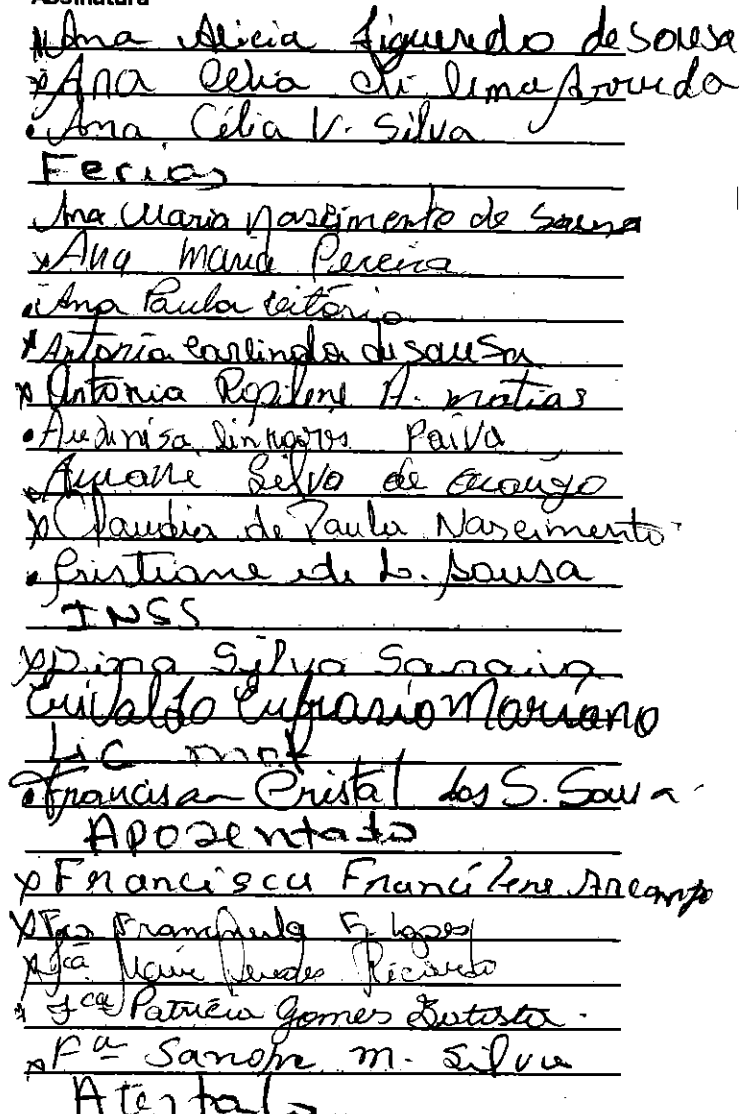 Assinatura
Ana Alicia Figueredo de Sousa
Ana Celia de Lima Arruda
Ana Célia V. Silva
Ferias
Ana Maria Nascimento de Sousa
Ana Maria Pereira
Ana Paula
Antonia Carlinda de Sousa
Antonia Rosilene A. Matias
Paiva
Silva de Araujo
Claudia de Paula Nascimento
Cristiane de L. Sousa
INSS
Dina Silva Saraiva
Eufrasio Mariano
Lic mat
Francisca Cristal dos S. Sousa
Aposentado
Francisca Francilene Arcanjo
Lopes
Fca Ricardo
Fca Patricia Gomes Batista
Fa M. Silva
Atestado